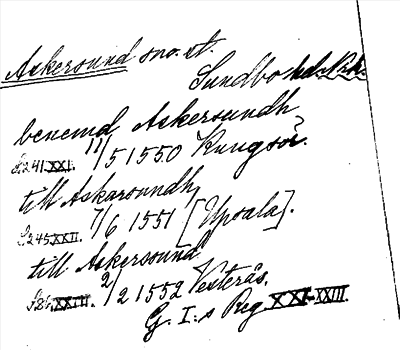 Askersund sno. st.
Sundbo hd. Nrk.
benemd Askersundh
S. 241. XXI. 11/5 1550 Kungsör.
till Askarsundh,
S. 245. XXII. 7/6 1551 [Upsala].
till Askerssund
S. 86. XXIII. 2/2 1552 Vesterås.
G. I:s Reg. XXI-XXIII.